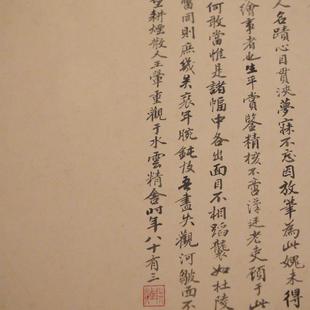 人名蹟心目貫浹夢寐不忘因放筆為此媿未得
繪事者也生平賞鑒精核不啻漢廷老吏顧于此
何敢當惟是諸幅中各出面目不相蹈襲如杜陵
同則庶幾矣衰年腕鈍技吾盡失觀河皺面不
耕煙散人王翬重觀于水雲精舍時年八十有三